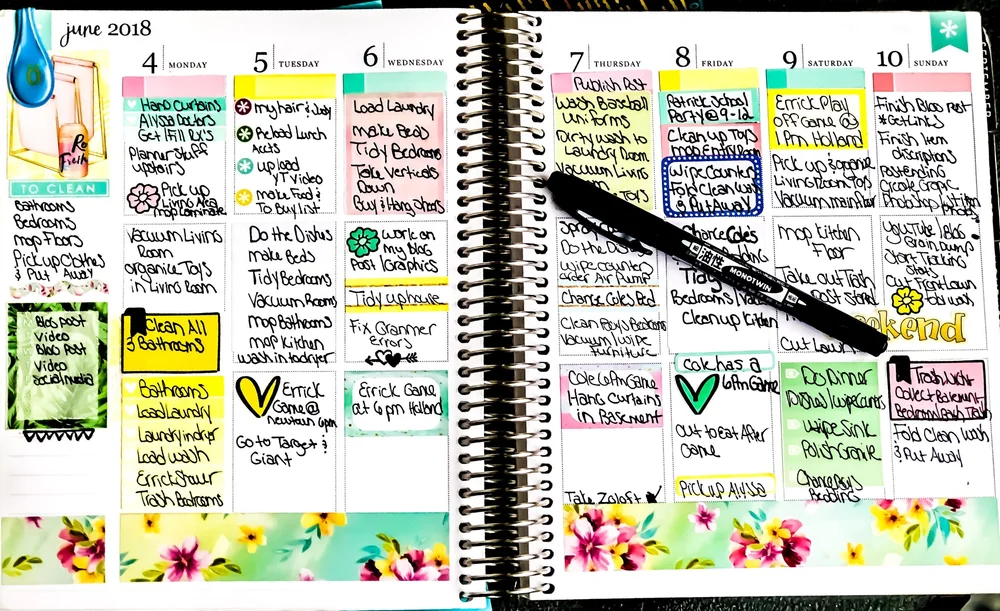 june 2018
TO CLEAN
Bathrooms
Bedrooms
mop Floors
Pick up Clothes
& Put Away
Blog post
Video
Blog Post
Video
Social media
4 MONDAY
Hang Curtains
Alyssa Doctors
Get | Fill Rx's
Planner Stuff
upstairs
Pick up
Living Area
mop Laminate
Vacuum Living
Room
organize Toys
in Living Room
Clean All
3 Bathrooms
Bathrooms
Load Laundry
Laundry in dryer
Load wash
Errick Shower
Trash Bedrooms
5 TUESDAY
my hair &
Reload Lunch
Accts
upload
YT Video
make Food &
To Buy list
Do the Dishes
make Beds
Tidy Bedrooms
Vacuum Rooms
mop Bathrooms
mop Kitchen
wash in to dryer
Errick
Game @
newtown 6pm
Go to Target &
Giant
6 WEDNESDAY
Load Laundry
make Beds
Tidy Bedrooms
Take Verticals
Down
Buy & Hang Shears
work on
my blog
Post | Graphics
Tidy uphouse
Fix Grammer
Errors
Errick Game
at 6 pm Holland
7 THURSDAY
Publish Post
wash Baseball
uniforms
Dirty wash to
Laundry Room
Vacuum Living
Toys
Do the Dishes
wipe counters
Change Coles Bed
Clean Boys Bedrooms
Vacuum | wipe
furniture
Cole 6pm Game
Hang Curtains
in Basement
Take Zoloft
8 FRIDAY
Patrick School
Party @ 9-12
Clean up Toys
mop Entry Room
Wipe Counter
Fold Clean wash
& Put Away
Change Coles
Bedding
Tidy
Bedrooms | Vac
Clean up Kitchen
Cole has a
6pm Game
Out to Eat After
Game
Pick up Alyssa
9 SATURDAY
Errick Play
off Game @
1pm Holland
Pick up & organize
Living Room Toys
Vacuum main floor
mop Kitchen
Floor
Take out Trash
Cut Lawn
Do Dinner
Dishes | wipe counters
wipe Sink
Polish Granite
Change Boys
Bedding
10 SUNDAY
Finish Blog Post
* Get Links
Finish Item
discriptions
YouTube | Blog
Brain Dump
Start Tracking
Stats
Cut Front Lawn
Trash Night
Collect Basement
Bedroom Bath Trash
Fold Clean wash
& Put Away
MONOTWIN